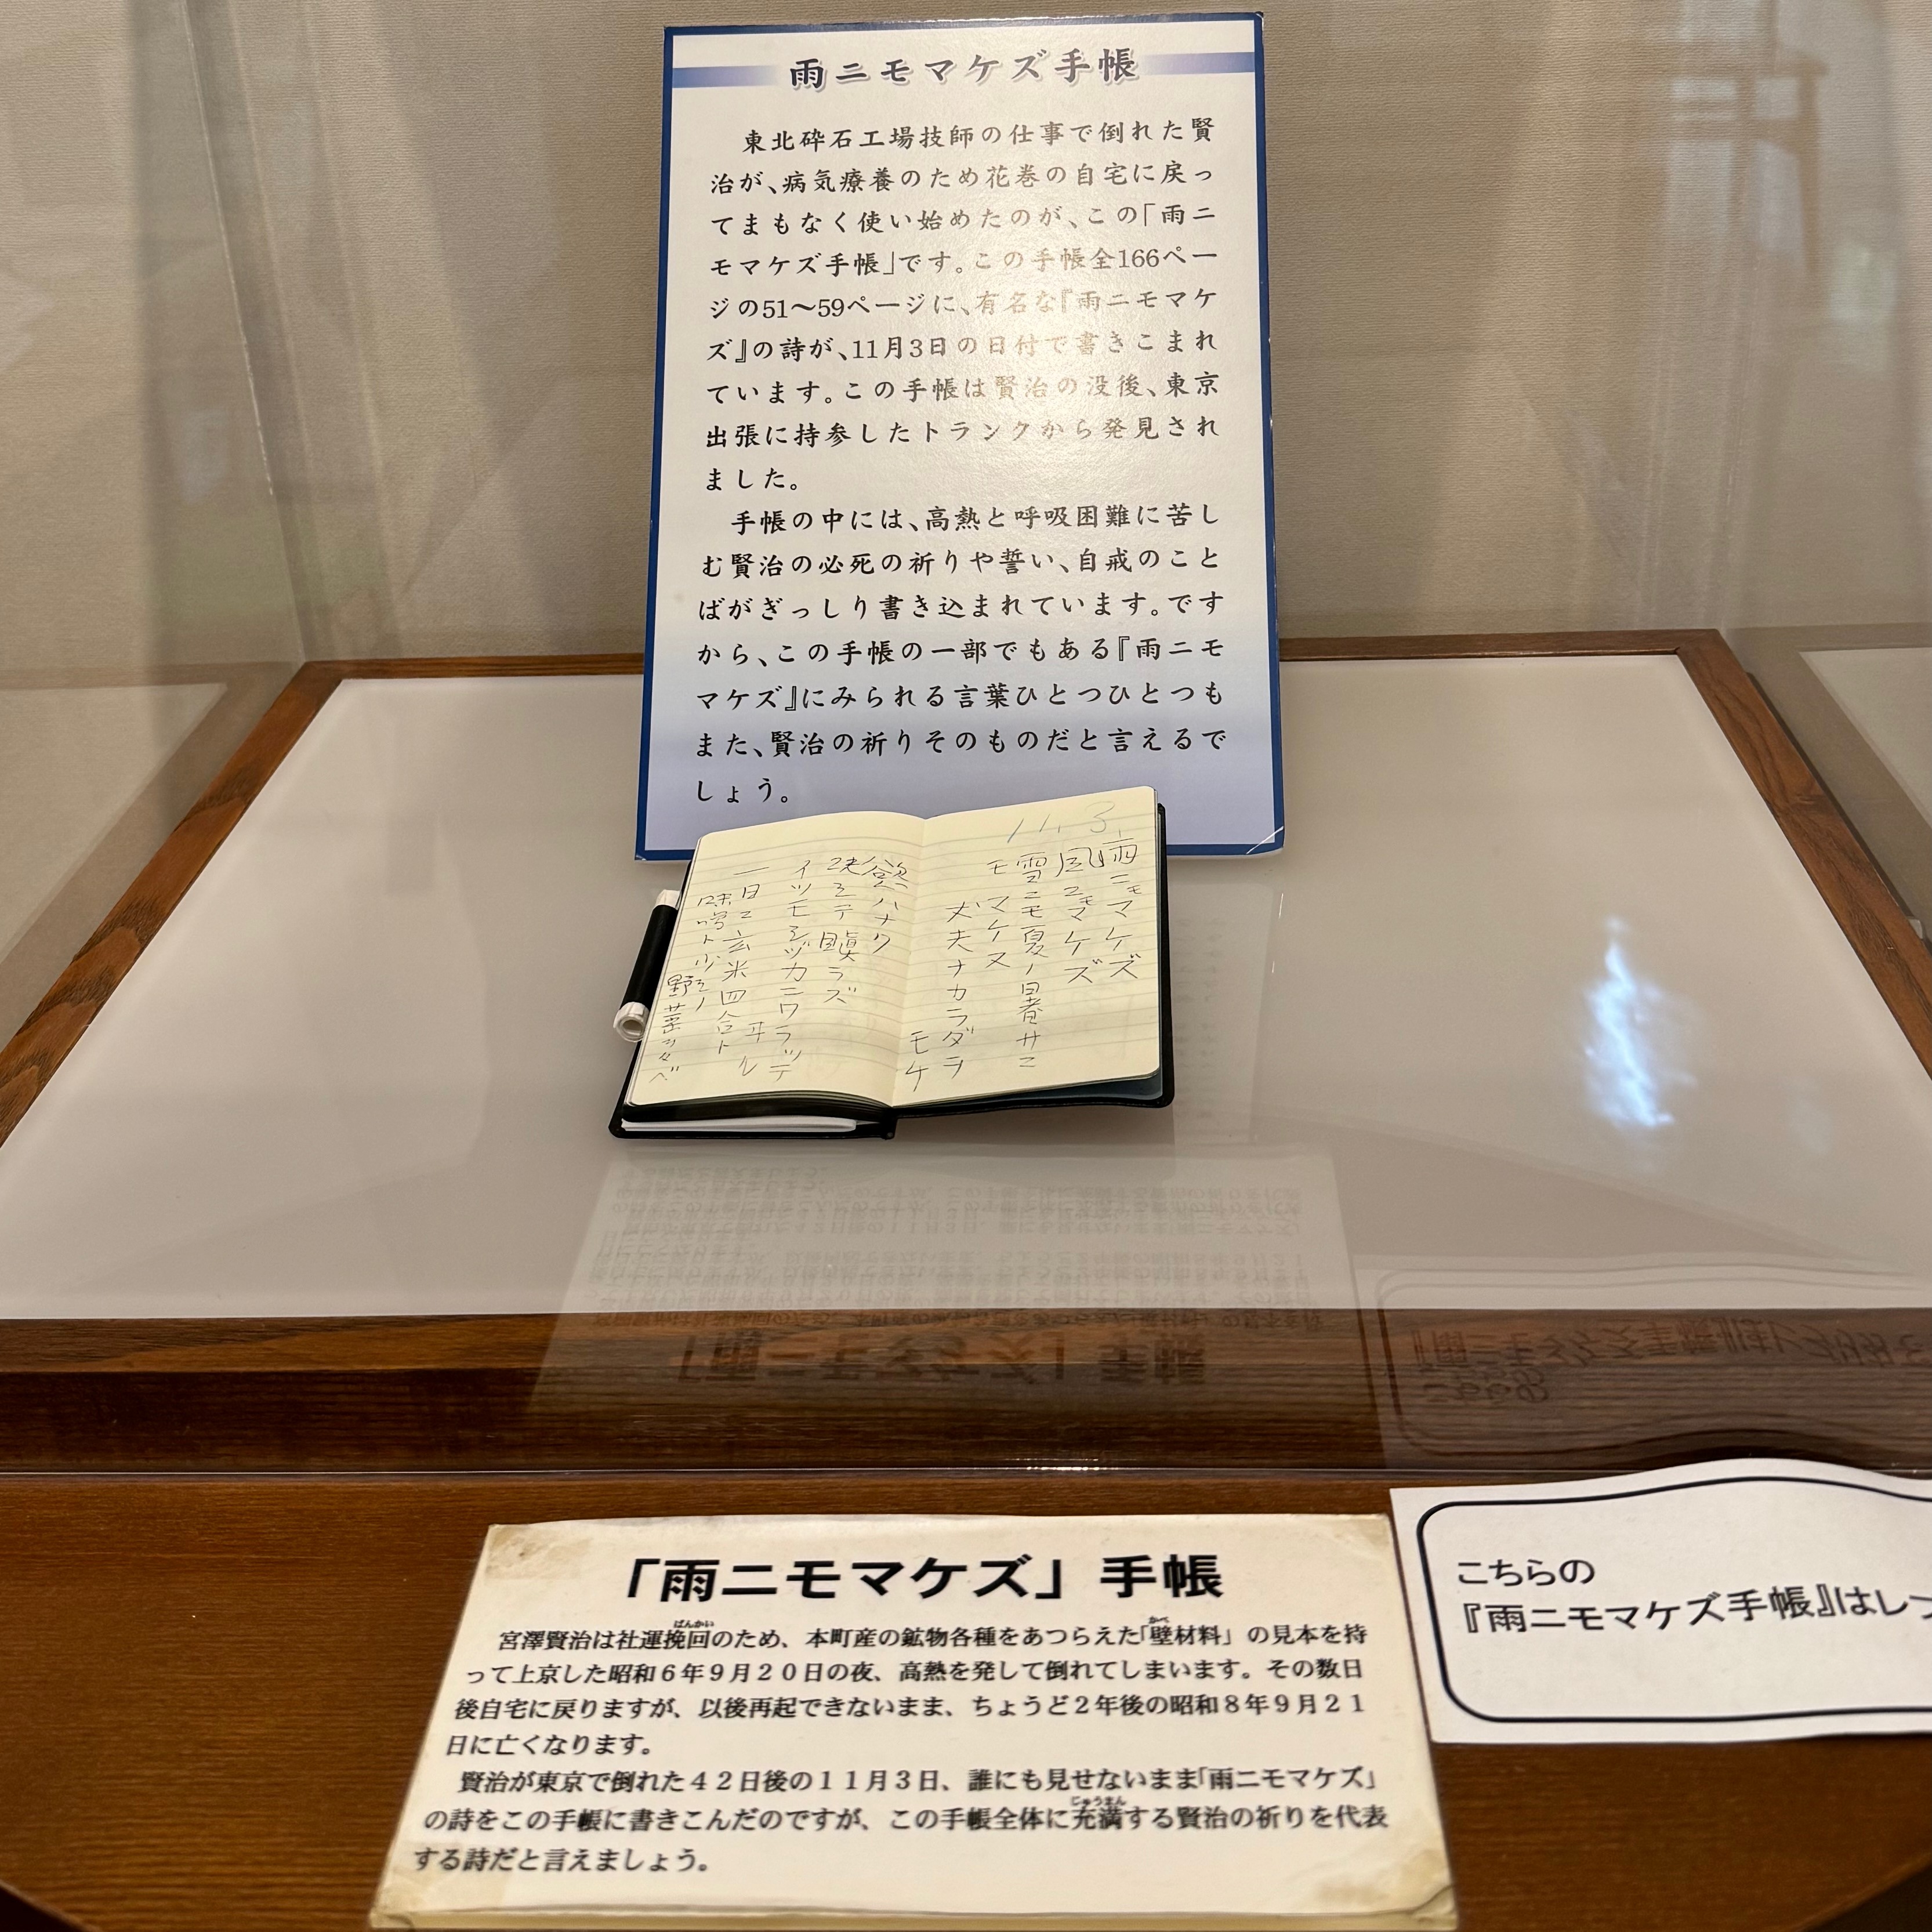 雨ニモマケズ手帳
東北砕石工場技師の仕事で倒れた賢
治が、病気療養のため花巻の自宅に戻っ
てまもなく使い始めたのが、この「雨ニ
モマケズ手帳」です。この手帳全166ペー
ジの51〜59ページに、有名な『雨ニモマケ
ズ』の詩が、11月3日の日付で書きこまれ
ています。この手帳は賢治の没後、東京
出張に持参したトランクから発見され
ました。
手帳の中には、高熱と呼吸困難に苦し
む賢治の必死の祈りや誓い、自戒のこと
ばがぎっしり書き込まれています。です
から、この手帳の一部でもある『雨ニモ
マケズ』にみられる言葉ひとつひとつも
また、賢治の祈りそのものだと言えるで
しょう。
11.3.
雨ニモマケズ
風ニモマケズ
雪ニモ夏ノ暑サニ
モマケヌ
丈夫ナカラダヲ
モチ
慾ハナク
決シテ瞋ラズ
イツモシヅカニワラッテ
ヰル
一日ニ玄米四合ト
味噌ト少シノ
野菜ヲタベ
「雨ニモマケズ」手帳
宮澤賢治は社運挽回のため、本町産の鉱物各種をあつらえた「壁材料」の見本を持
って上京した昭和6年9月20日の夜、高熱を発して倒れてしまいます。その数日
後自宅に戻りますが、以後再起できないまま、ちょうど2年後の昭和8年9月21
日に亡くなります。
賢治が東京で倒れた42日後の11月3日、誰にも見せないまま「雨ニモマケズ」
の詩をこの手帳に書きこんだのですが、この手帳全体に充満する賢治の祈りを代表
する詩だと言えましょう。
こちらの
『雨ニモマケズ手帳』はレプ